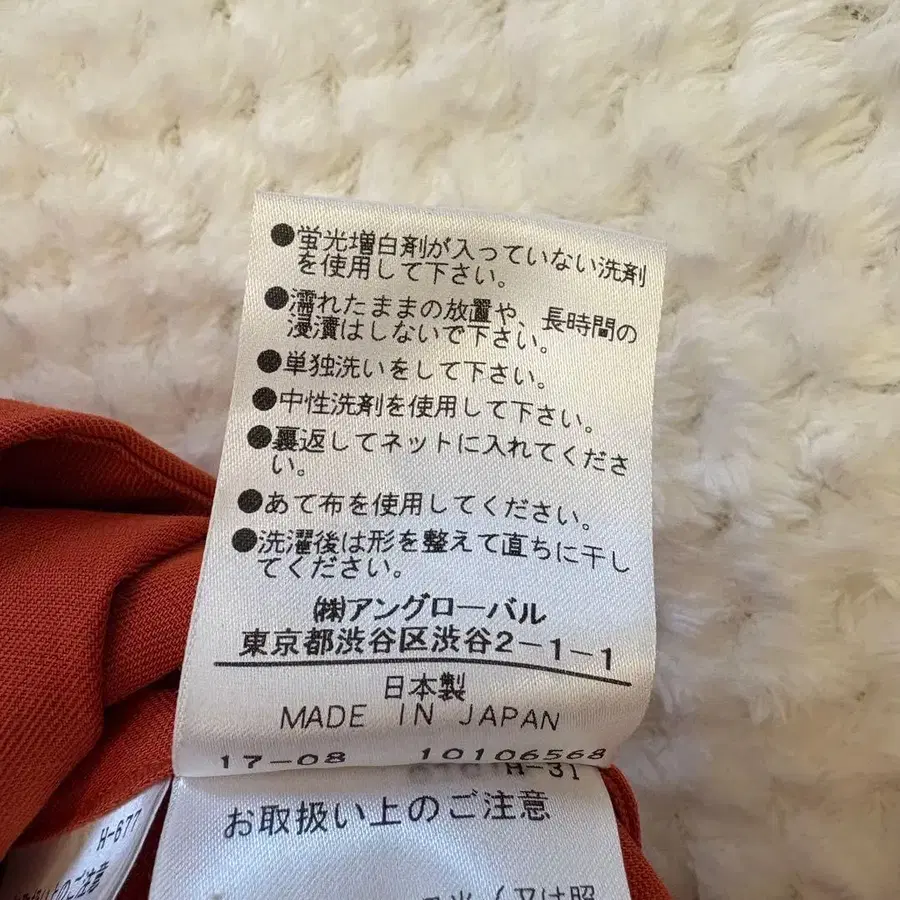 ●蛍光増白剤が入っていない洗剤
を使用して下さい。
●濡れたままの放置や、長時間の
浸漬はしないで下さい。
●単独洗いをして下さい。
●中性洗剤を使用して下さい。
●裏返してネットに入れてくださ
い。
●あて布を使用してください。
●洗濯後は形を整えて直ちに干し
てください。
㈱アングローバル
東京都渋谷区渋谷2-1-1
日本製
MADE IN JAPAN
17-08 10106568
H-31
お取扱い上のご注意
H-677
扱い上のご注意
(又は照